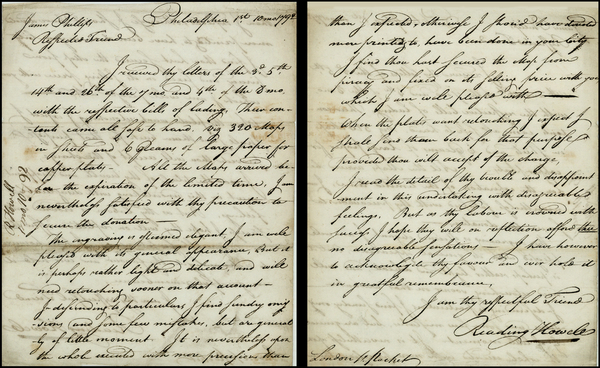 Philadelphia 1st 10mo 1792
James Phillips
Respected Friend
I received thy letters of the 3d 5th
14th and 26th of the 7 mo. and 4th of the 8 mo.
with the respective bills of lading, Their con-
tents came all safe to hand. Viz 320 Maps
in sheets and 6 Reams of large paper for
copper plates — All the Maps arrived be-
the expiration of the limited time, I am
nevertheless satisfied with thy precaution to
secure the donation —
The engraving is esteemed elegant, I am well
pleased with its general appearance, But it
is perhaps rather light and delicate, and will
need retouching sooner on that account —
I descending to particulars I find sundry omis-
sions (and some few mistakes, but are general-
ly of little moment. It is nevertheless upon
the whole executed with more precision than
R. Howell
10 mo 92
than I expected, otherwise I should have
more printed, to have been done in your City
I find thou hast secured the Map from
piracy and fixed on its selling price with you
which I am well pleased with —
When the plates want retouching I expect I
shall send them back for that purpose
provided thou will accept of the charge,
I read the detail of thy trouble and disappoint
ment in this undertaking with disagreeable
feelings, But as thy labour is crowned with
success I hope they will on reflection afford thee
no disagreeable sensations — I have however
to acknowledge thy favour and ever hold it
in grateful remembrance,
I am thy respectful Friend
Reading Howell
London Packet